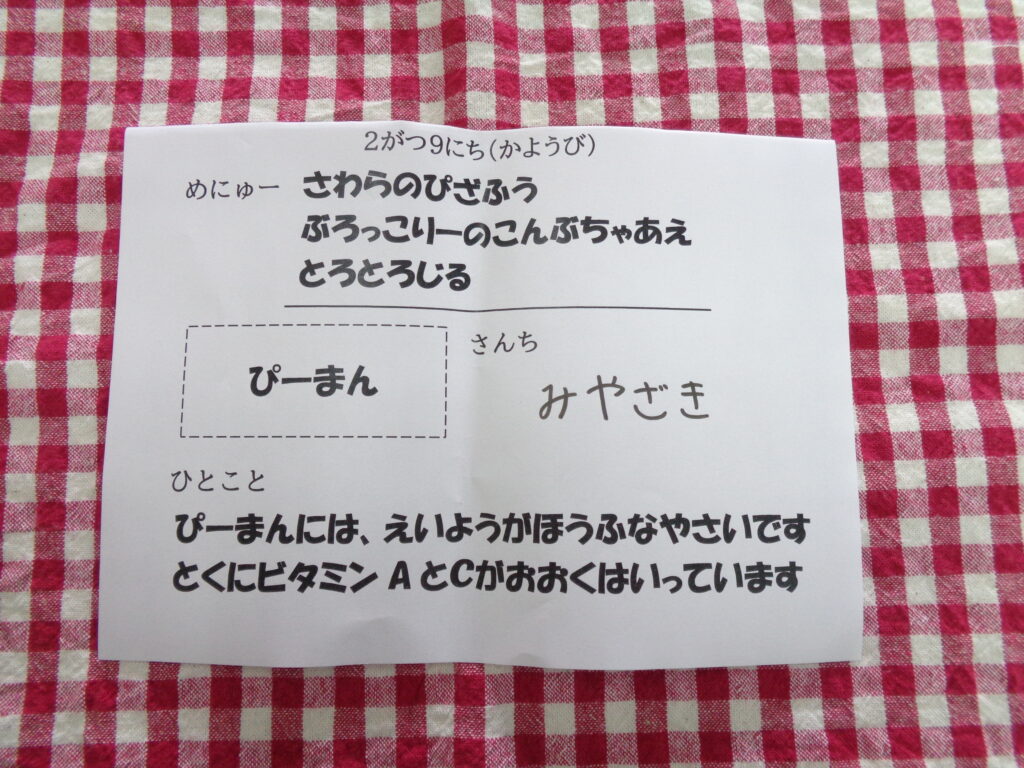 2がつ9にち(かようび)
めにゅー さわらのぴざふう
ぶろっこりーのこんぶちゃあえ
とろとろじる
さんち
ぴーまん みやざき
ひとこと
ぴーまんには、えいようがほうふなやさいです
とくにビタミンAとCがおおくはいっています